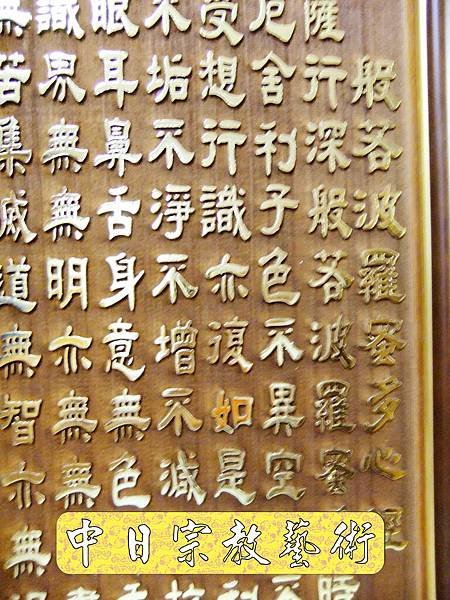 般若波羅蜜多心經
薩行深般若波羅蜜時
厄舍利子色不異空不
受想行識亦復如是利
不垢不淨不增不減
眼耳鼻舌身意無色
識界無無明亦無無
無苦集滅道無智亦無
中日宗教藝術